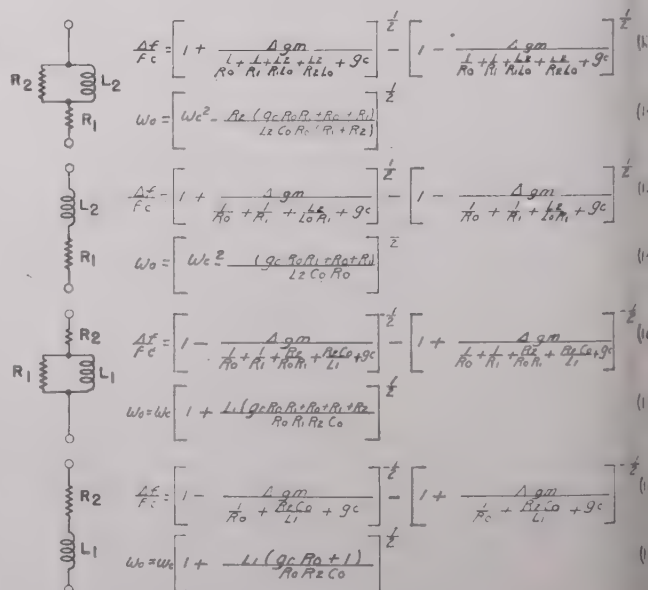 R2 L2 R1
Δf/Fc = [1 + Δgm / (1/R0 + 1/R1 + L2/R1L0 + L2/R2L0 + gc)]^1/2 − [1 − Δgm / (1/R0 + 1/R1 + L2/R1L0 + L2/R2L0 + gc)]^1/2
ω0 = [ωc² − R2 (gc R0R1 + R0 + R1) / L2 C0 R0 (R1 + R2)]^1/2
L2 R1
Δf/Fc = [1 + Δgm / (1/R0 + 1/R1 + L2/L0R1 + gc)]^1/2 − [1 − Δgm / (1/R0 + 1/R1 + L2/L0R1 + gc)]^1/2
ω0 = [ωc² − (gc R0R1 + R0 + R1) / L2 C0 R0]^1/2
R2 R1 L1
Δf/Fc = [1 − Δgm / (1/R0 + 1/R1 + R2/R0R1 + R2C0/L1 + gc)]^-1/2 − [1 + Δgm / (1/R0 + 1/R1 + R2/R0R1 + R2C0/L1 + gc)]^-1/2
ω0 = ωc [1 + L1 (gc R0R1 + R0 + R1 + R2 / R0 R1 R2 C0]^1/2
R2 L1
Δf/Fc = [1 − Δgm / (1/R0 + R2C0/L1 + gc)]^-1/2 − [1 + Δgm / (1/R0 + R2C0/L1 + gc)]^-1/2
ω0 = ωc [1 + L1 (gc R0 + 1) / R0 R2 C0]^1/2